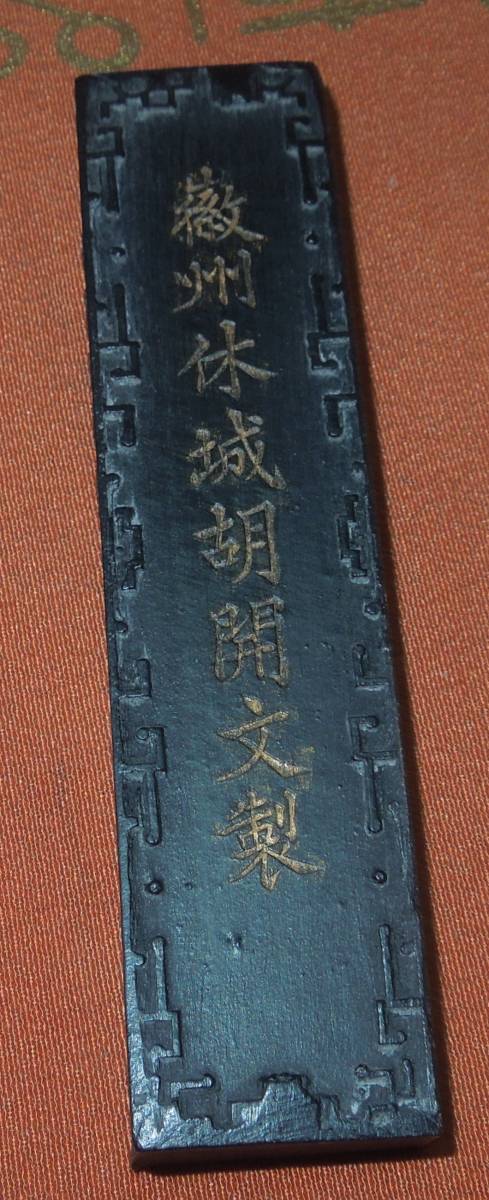 徽州休城胡開文製